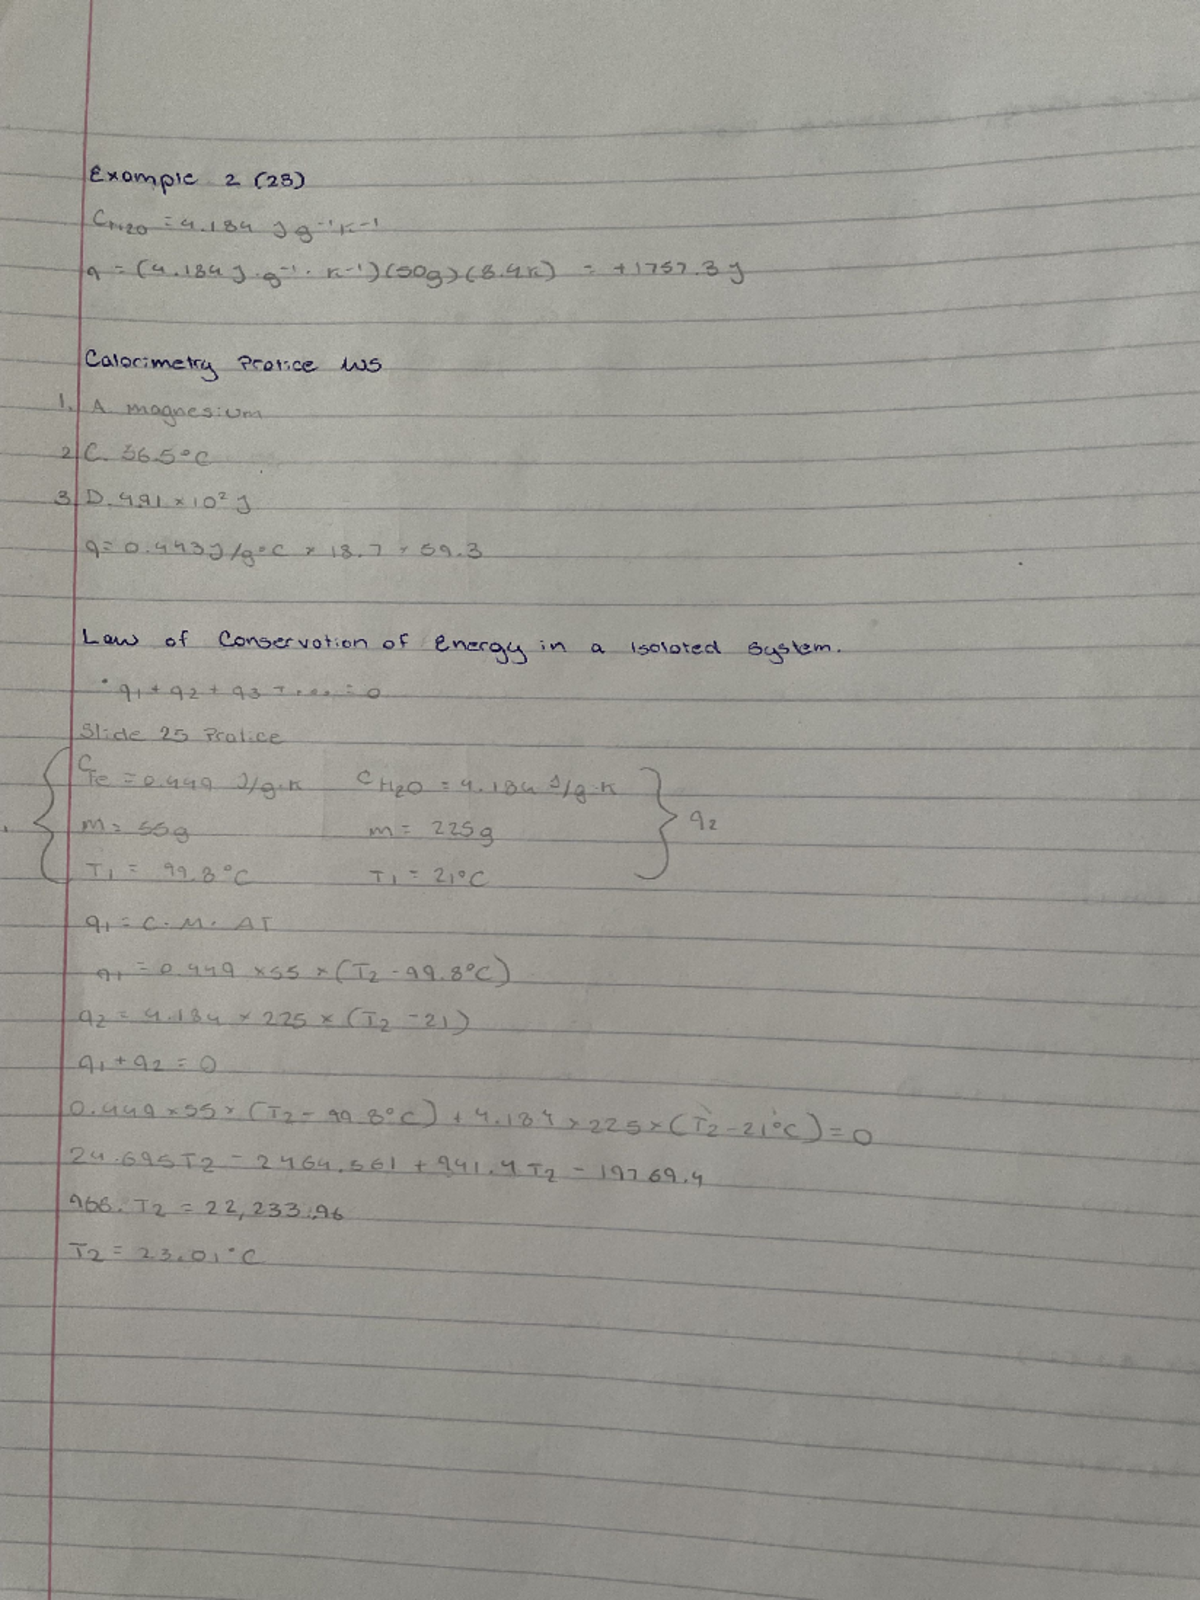 Example 2 (23)
CH2O = 4.184 J g⁻¹K⁻¹
q = (4.184 J·g⁻¹· K⁻¹)(50g)(8.4K) = +1757.3 J
Calorimetry Pratice WS
1. A magnesium
2 C. 36.5°C
3 D. 4.91 × 10² J
q = 0.443 J/g°C × 18.7 × 59.3
Law of Conservation of Energy in a Isolated System.
• q₁ + q₂ + q₃ + .... = 0
Slide 25 Pratice
CFe = 0.449 J/g·K CH₂O = 4.184 J/g·K
m = 55g m = 225g } q₂
T₁ = 99.8°C T₁ = 21°C
q₁ = C · M · ΔT
q₁ = 0.449 × 55 × (T₂ - 99.8°C)
q₂ = 4.184 × 225 × (T₂ - 21)
q₁ + q₂ = 0
0.449 × 55 × (T₂ - 99.8°C) + 4.184 × 225 × (T₂ - 21°C) = 0
24.695T₂ - 2464.561 + 941.4T₂ - 19769.4
966. T₂ = 22,233.96
T₂ = 23.01°C